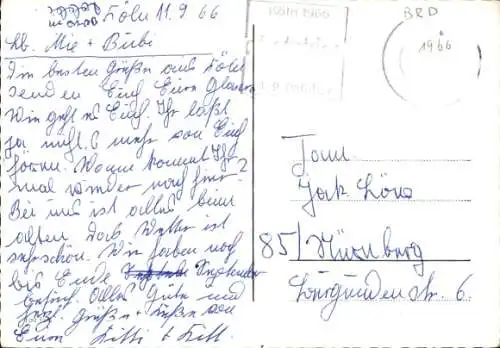 Köln 11.9.66
Lb. Mie + Bubi
Die besten Grüße aus Köln
senden Euch Eure
Wie geht es Euch. Ihr laßt
ja nichts mehr von Euch
hören. Wann kommt Ihr
mal wieder nach hier?
Bei uns ist alles beim
alten. Das Wetter ist
sehr schön. Wir haben noch
bis Ende September
Besuch. Alles Gute und
herzl. Grüße + Küße von
Eure Kitti +
BRD
1966
Fam.
Jak
85/Nürnberg
Burgundenstr. 6.